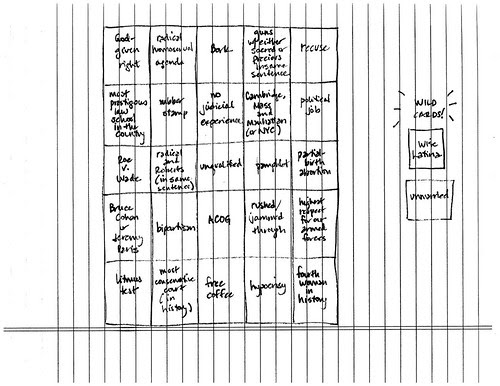 God-
given
right
radical
homosexual
agenda
Bork
guns
w/ either
sacred or
precious
in same
sentence
recuse
most
prestigious
law
school
in the
country
rubber
stamp
no
judicial
experience
Cambridge,
Mass
and
Manhattan
(or NYC)
political
job
Roe
v.
Wade
radical
and
Roberts
(in same
sentence)
unqualified
pamphlet
partial-
birth
abortion
Bruce
Cohen
or
Jeremy
bipartisan
ACOG
rushed/
jammed
through
highest
respect
for our
armed
forces
litmus
test
most
conservative
court
(in
history)
free
coffee
hypocrisy
fourth
woman
in
history
WILD
CARDS!
Wise
Latina
unwanted